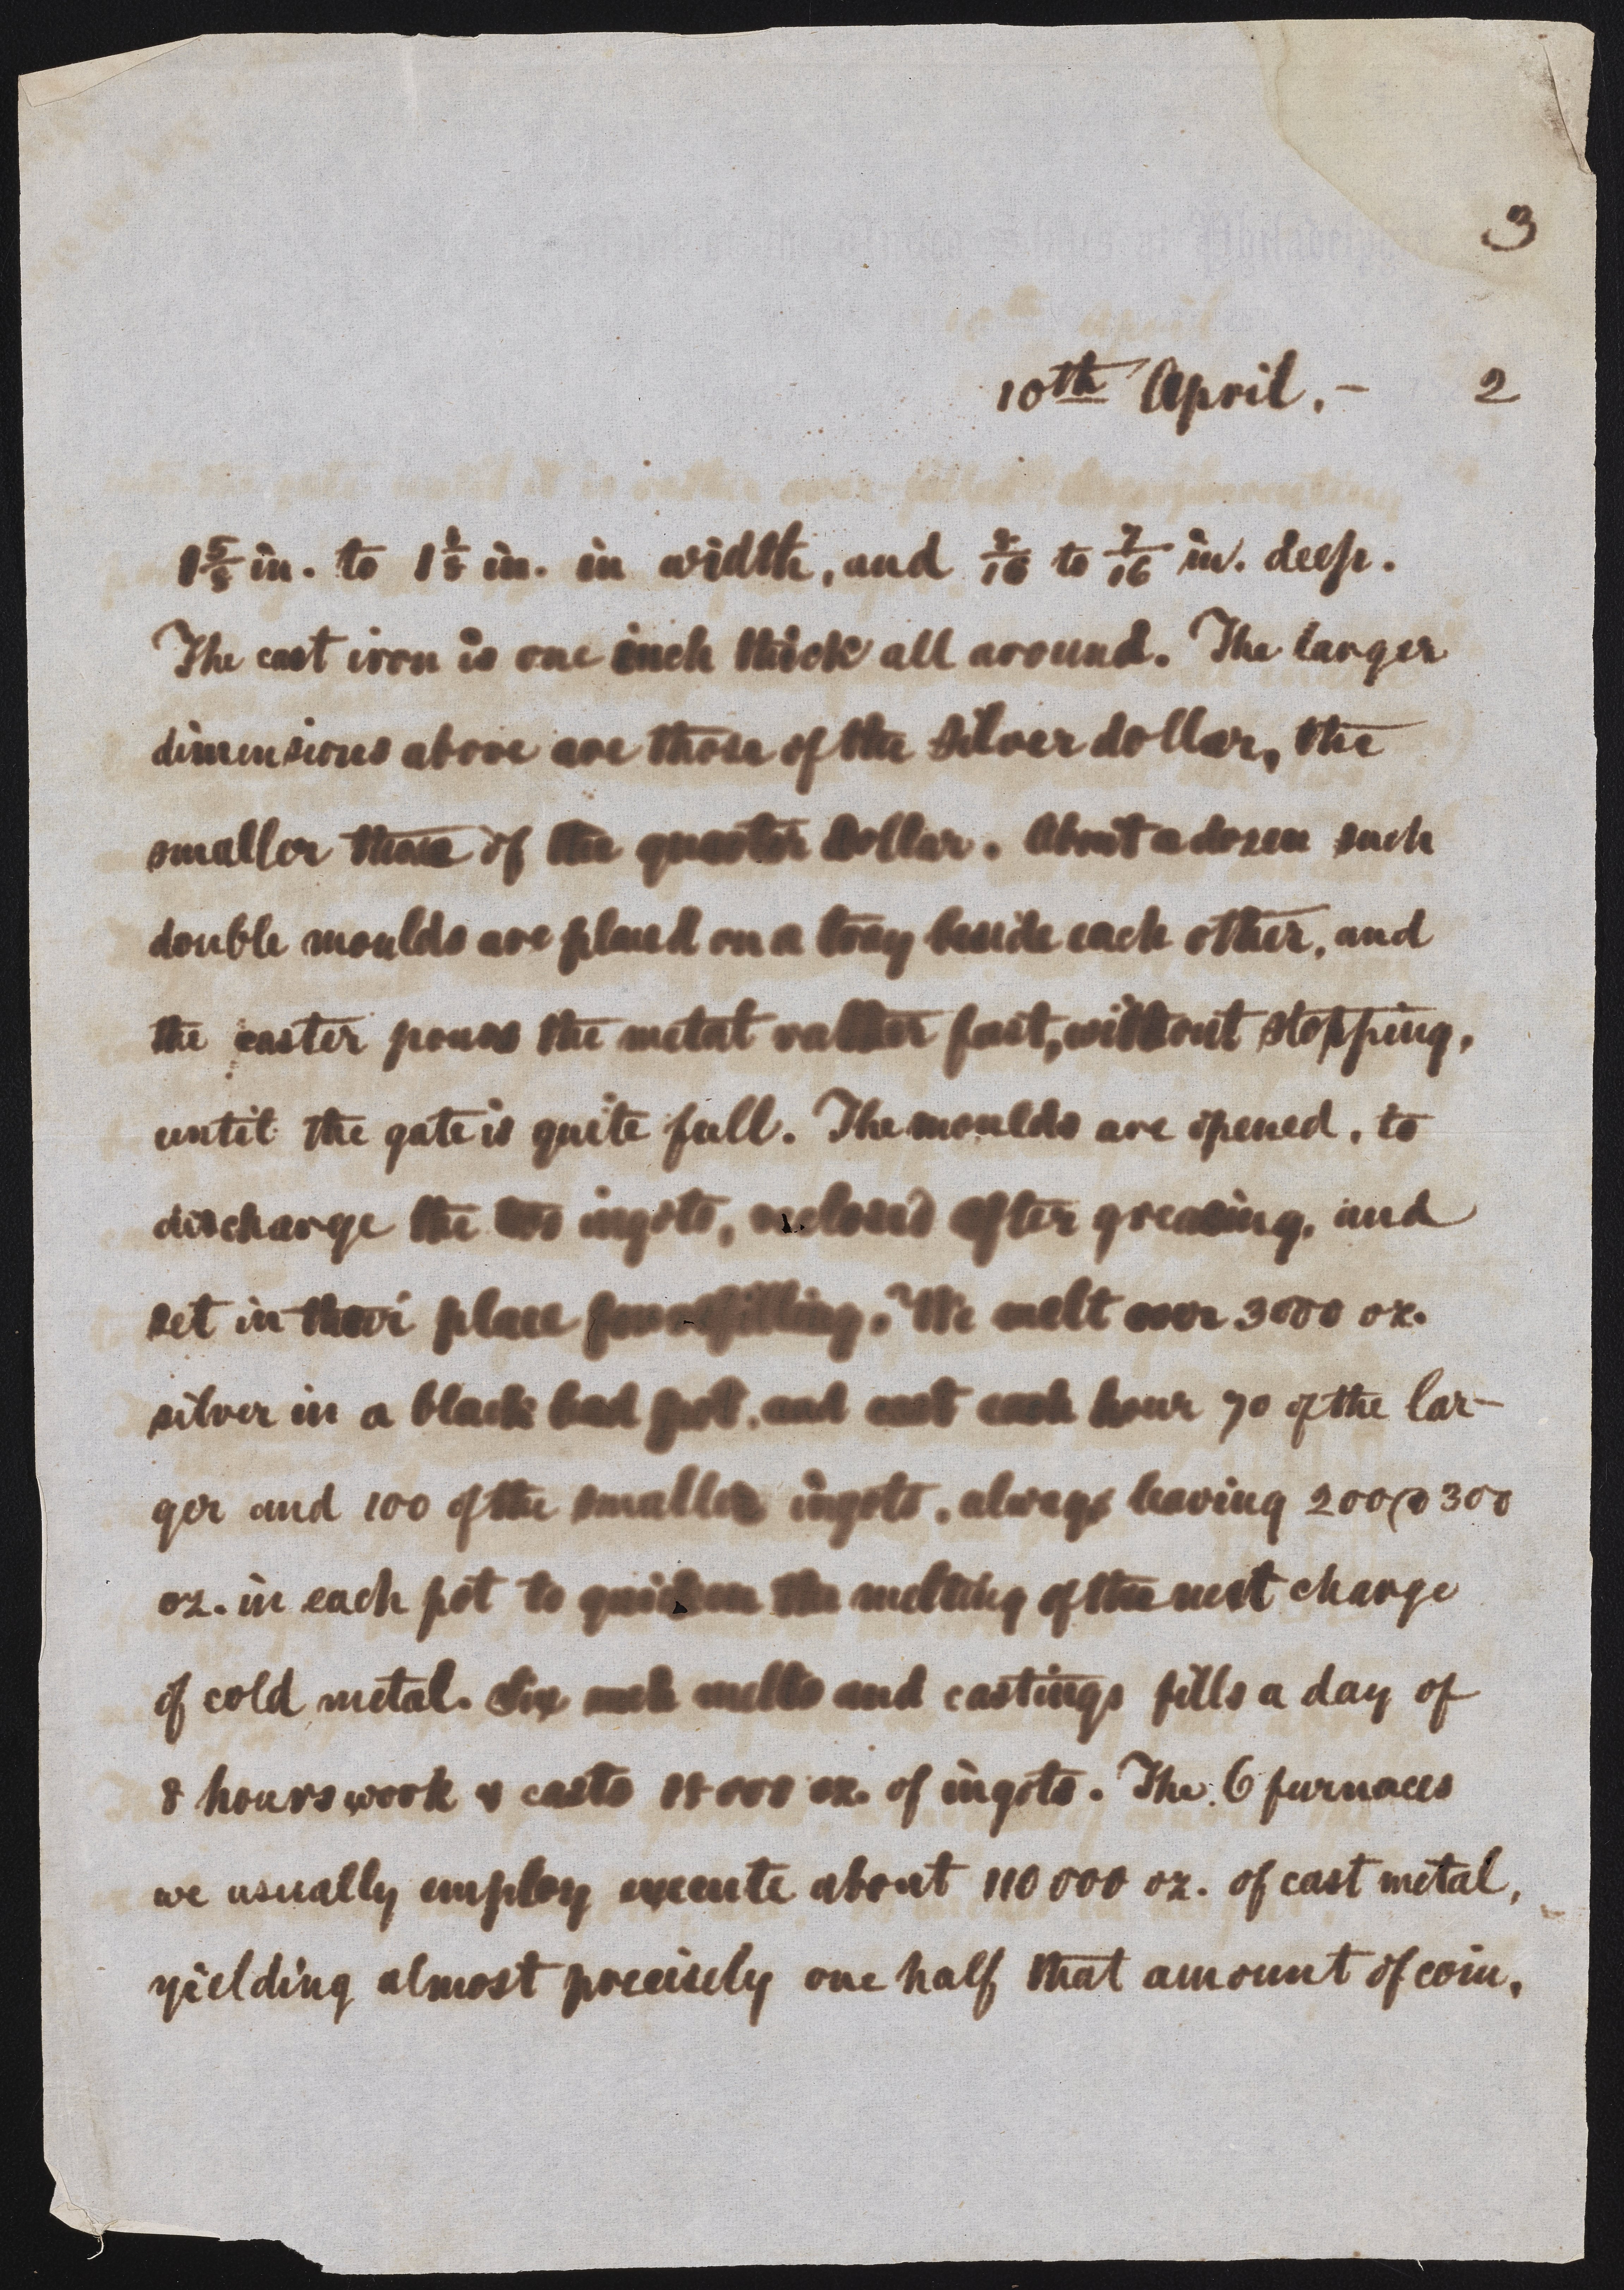 3
10th April. – 2
1 5/8 in. to 1 1/8 in. in width, and 8/16 to 7/16 in. deep.
The cast iron is one inch thick all around. The larger
dimensions above are those of the silver dollar, the
smaller those of the quarter dollar. About a dozen such
double moulds are placed on a tray beside each other, and
the caster pours the metal rather fast, without stopping,
until the gate is quite full. The moulds are opened, to
discharge the two ingots, reclosed after greasing, and
set in their place for refilling. We melt over 3000 oz.
silver in a black lead pot, and cast each hour 70 of the lar-
ger and 100 of the smaller ingots, always leaving 200 @ 300
oz. in each pot to quicken the melting of the next charge
of cold metal. Six such melts and castings fills a day of
8 hours work & casts 18000 oz. of ingots. The 6 furnaces
we usually employ execute about 110 000 oz. of cast metal,
yielding almost precisely one half that amount of coin.